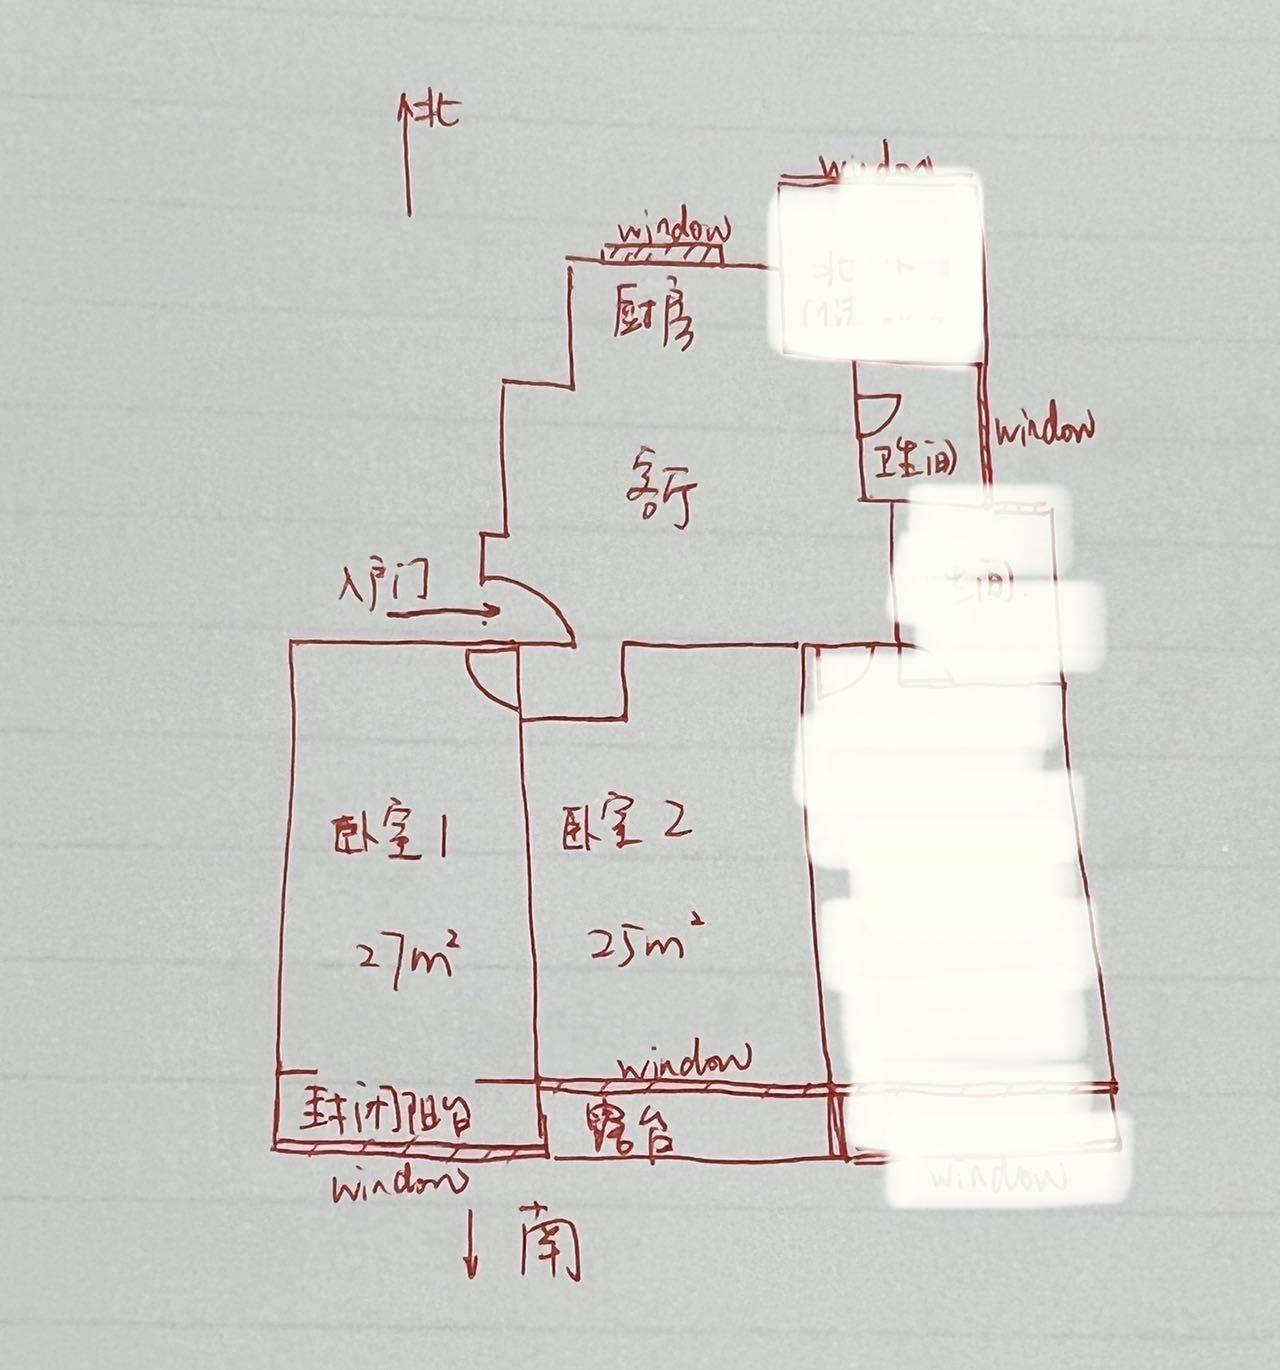 北
window
window
厨房
window
卫生间
客厅
入户门
卧室1
卧室2
27m²
25m²
window
封闭阳台
露台
window
window
南